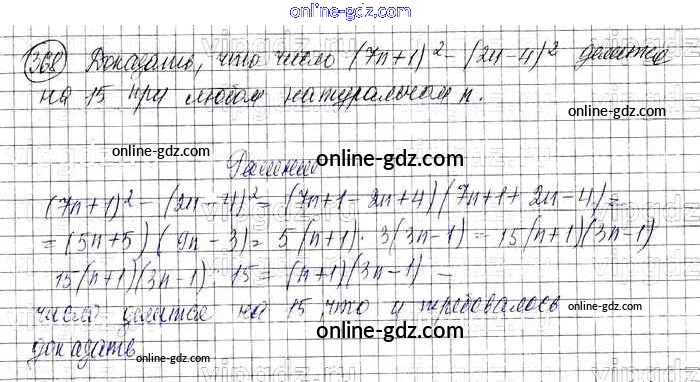 online-gdz.com
368 Доказать, что число (7n+1)² - (2n-4)² делится
на 15 при любом натуральном n.
online-gdz.com
online-gdz.com
online-gdz.com
Решение
(7n+1)² - (2n-4)² = (7n+1-2n+4)(7n+1+2n-4) =
online-gdz.com
= (5n+5)(9n-3) = 5(n+1)·3(3n-1) = 15(n+1)(3n-1)
15(n+1)(3n-1) : 15 = (n+1)(3n-1) –
число делится на 15 что и требовалось
online-gdz.com
online-gdz.com
доказать
online-gdz.com